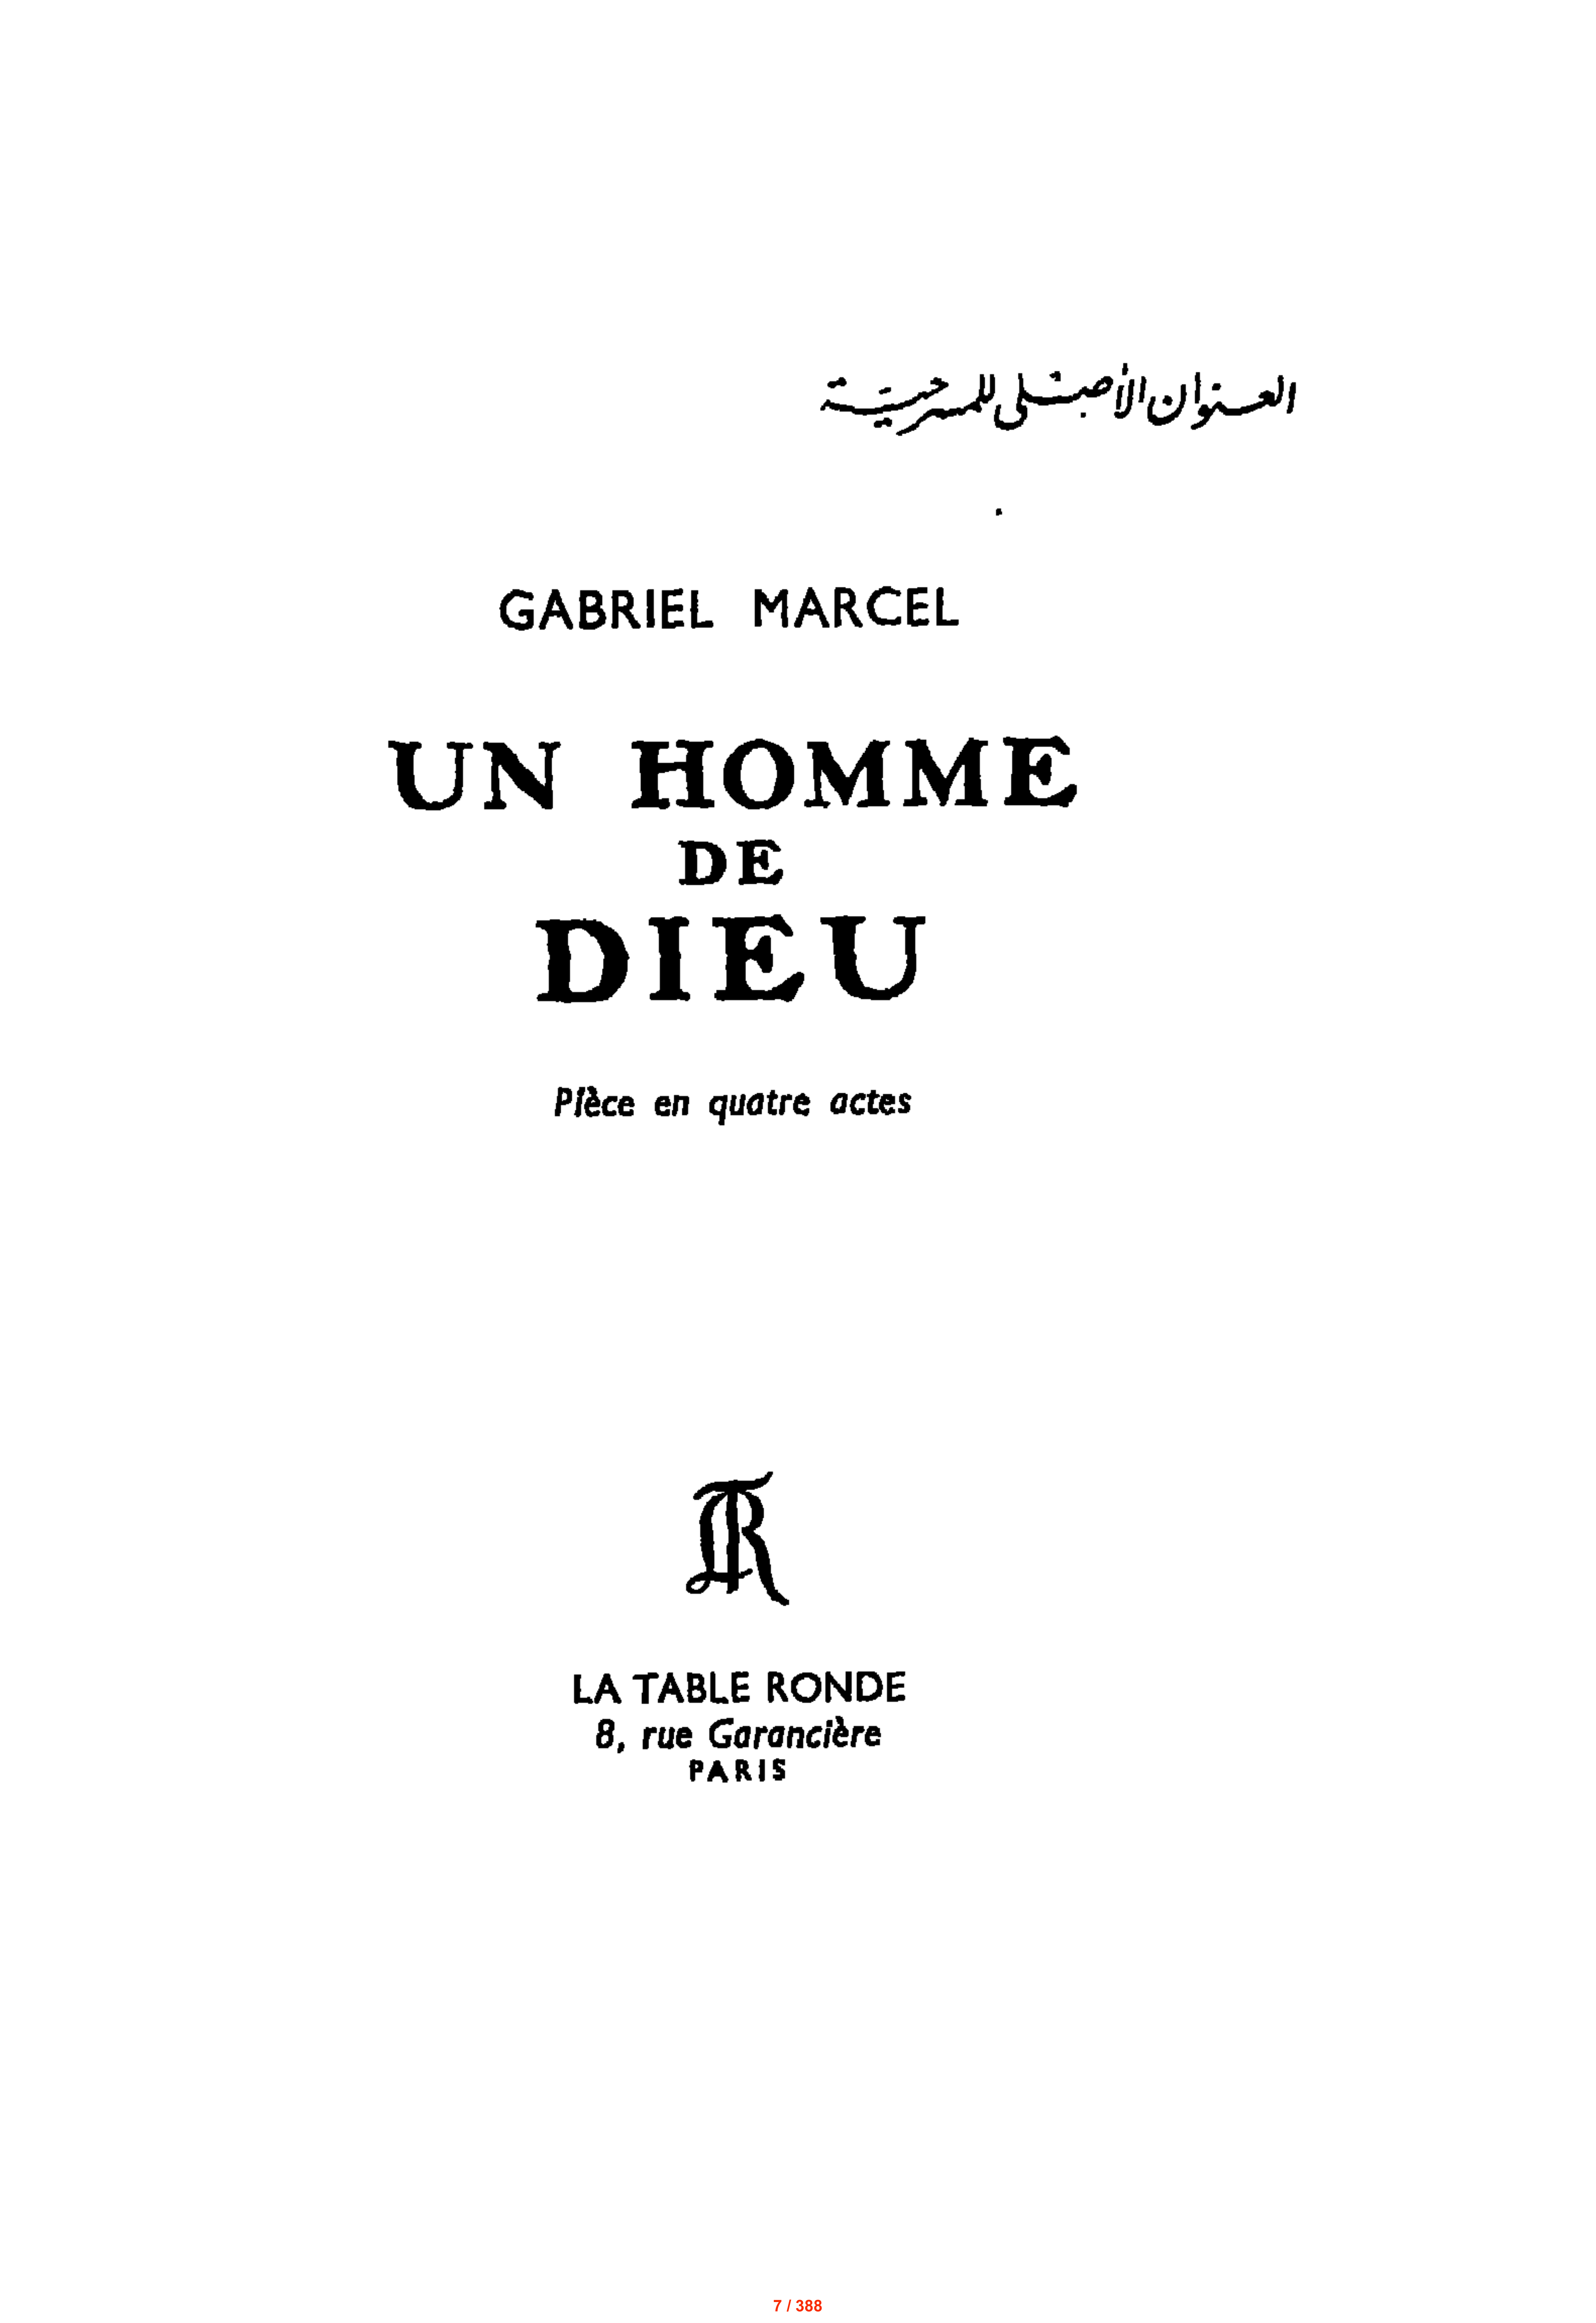 العنوان الأصلى للمسرحية
GABRIEL MARCEL
UN HOMME
DE
DIEU
Pièce en quatre actes
LTR
LA TABLE RONDE
8, rue Garancière
PARIS
7 / 388